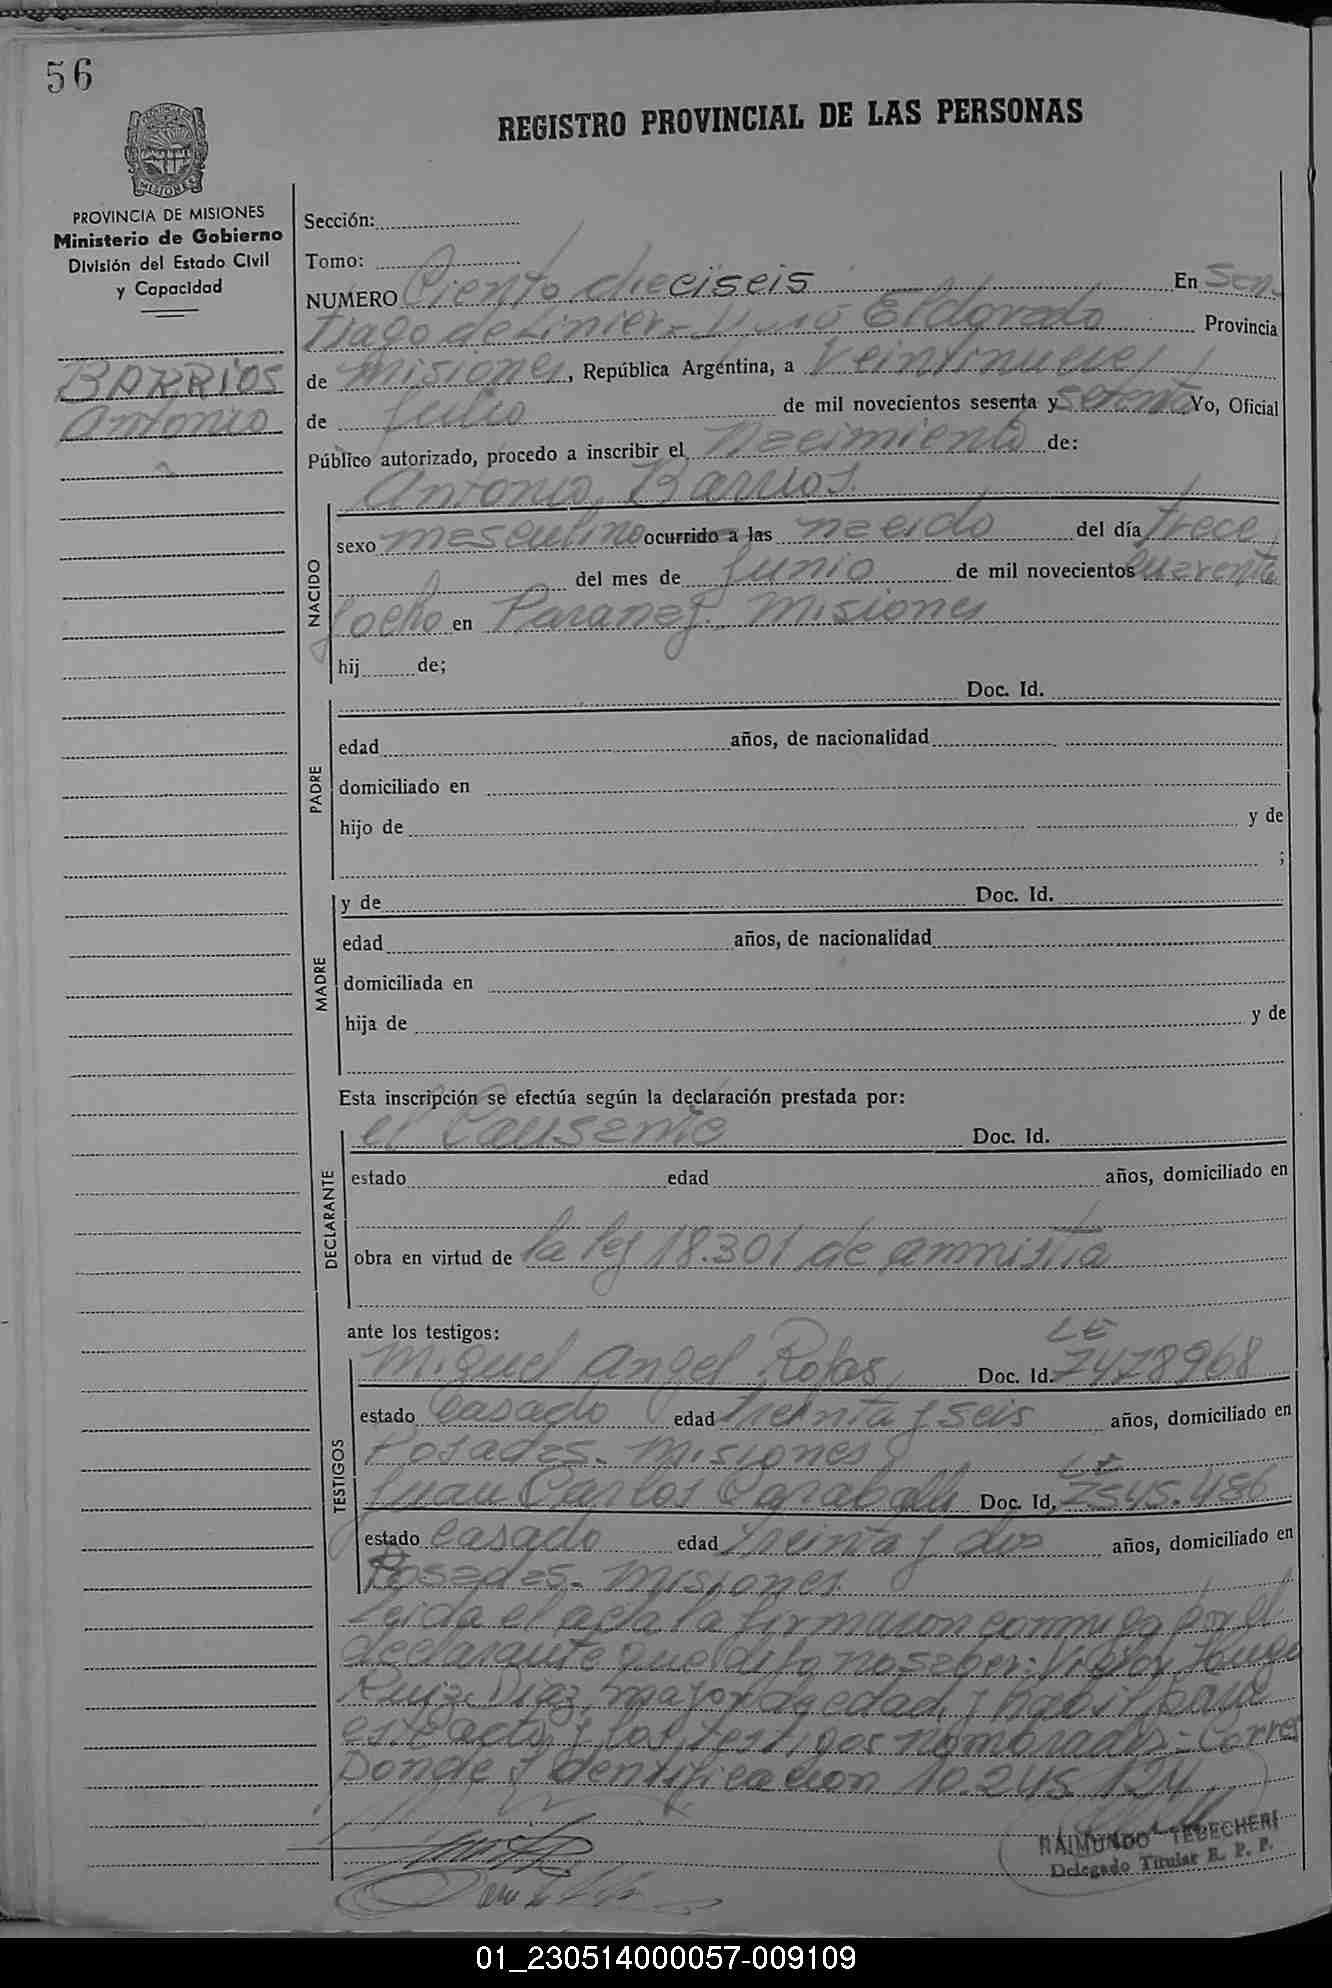 56
REGISTRO PROVINCIAL DE LAS PERSONAS
PROVINCIA DE MISIONES
Ministerio de Gobierno
División del Estado Civil
y Capacidad
BARRIOS
Antonio
Sección:
Tomo:
NUMERO Ciento dieciseis En San
tiago de Liniers Eldorado Provincia
de Misiones, República Argentina, a Veintinueve
de Julio de mil novecientos sesenta y setenta Yo, Oficial
Público autorizado, procedo a inscribir el Nacimiento de:
Antonio Barrios
NACIDO
sexo masculino ocurrido a las nacido del día trece
del mes de Junio de mil novecientos cuarenta
y ocho en Paranay. Misiones
hij de;
PADRE
Doc. Id.
edad años, de nacionalidad
domiciliado en
hijo de y de
;
MADRE
y de Doc. Id.
edad años, de nacionalidad
domiciliada en
hija de y de
Esta inscripción se efectúa según la declaración prestada por:
DECLARANTE
el Causante Doc. Id.
estado edad años, domiciliado en
obra en virtud de la ley 18.301 de amnistia
ante los testigos:
TESTIGOS
Miguel Angel Rojas Doc. Id. LE 7478968
estado Casado edad treinta y seis años, domiciliado en
Posadas. Misiones
Juan Carlos Doc. Id. LE 7545.486
estado Casado edad treinta y dos años, domiciliado en
Posadas. Misiones
Leida el acta la firmaron conmigo por el
declarante que dijo no saber: Victor Hugo
Ruiz Diaz, mayor de edad y habil para
este acto y los testigos nombrados - Corres
ponde Identificacion 10.245.124
RAIMUNDO TEBECHERI
Delegado Titular R. P. P.
01_230514000057-009109